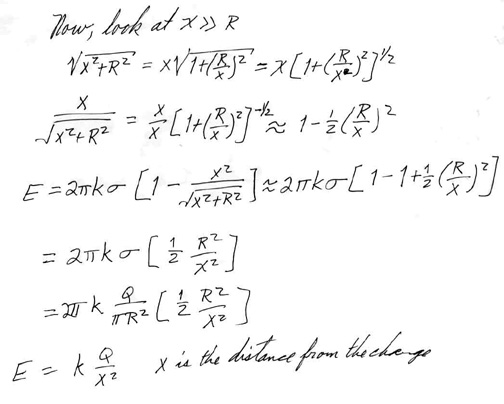 Now, look at x >> R
√(x²+R²) = x√(1+(R/x)²) = x[1+(R/x)²]^1/2
x/√(x²+R²) = x/x [1+(R/x)²]^-1/2 ≈ 1-1/2(R/x)²
E = 2πkσ [1 - x²/√(x²+R²)] ≈ 2πkσ[1-1+1/2(R/x)²]
= 2πkσ[1/2 R²/x²]
= 2π k Q/πR² [1/2 R²/x²]
E = k Q/x² x is the distance from the change